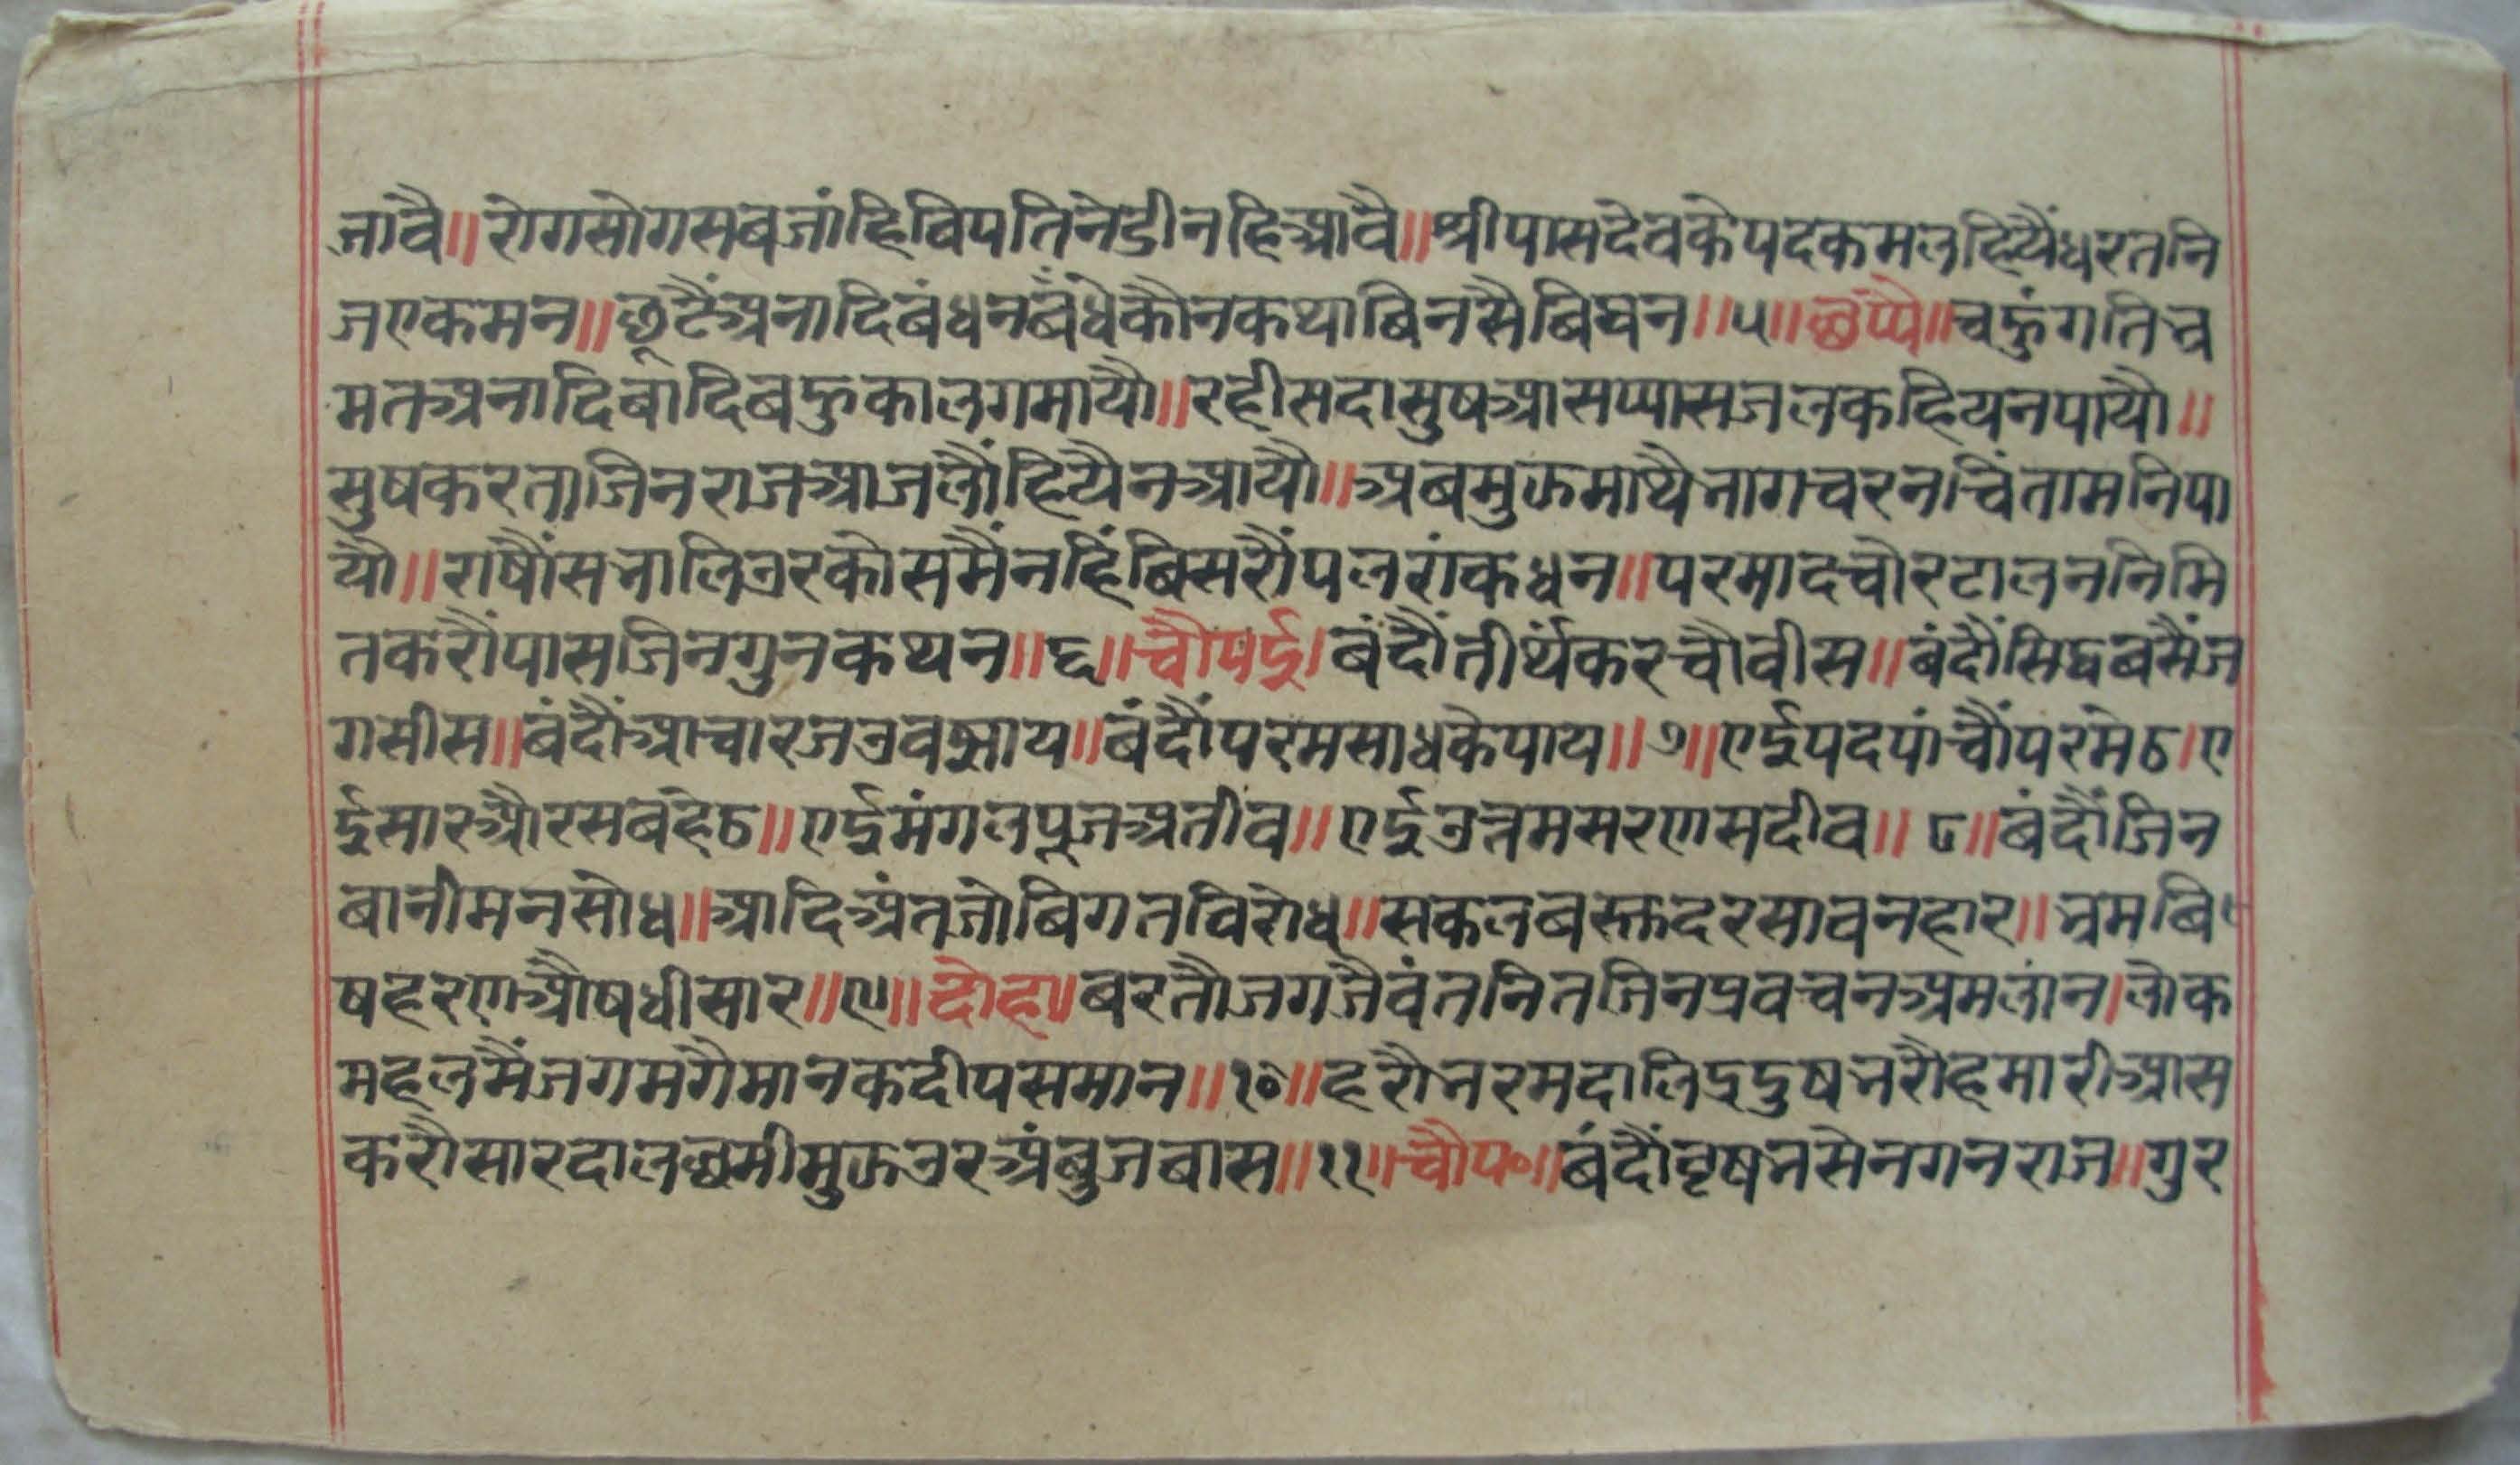 जावै॥रोगसोगसबजांहिविपतिनेडीनहिआवै॥श्रीपासदेवकेपदकमलहियैंधरतनि
जएकमन॥छूटैंअनादिबंधनबंधेकौनकथाबिनसैबिघन॥५॥छप्पै॥चहुंगतिच
मतअनादिबादिबहुकालगमायौ॥रहीसदासुषआसप्याससजलकहियनपायौ॥
सुषकरताजिनराजआजलौंहियैनआयौ॥अबमुझमाथैभागचरनचिंतामनिपा
यौ॥राषौंसभालिउरकोसमैंनहिंबिसरौंपलरांकधन॥परमादचोरटालननिमि
तकरौंपासजिनगुनकथन॥६॥चौपई।बंदौंतीर्थंकरचौवीस॥बंदौंसिद्धबसैंज
गसीस॥बंदौंआचारजउवझाय॥बंदौंपरमसाधकेपाय॥७॥एईपदपांचौंपरमेठ।ए
ईसारऔरसबहेठ॥एईमंगलपूजअतीव॥एईउत्तमसरणसदीव॥८॥बंदौंजिन
बानीमनसोध॥आदिअंतजोबिगतविरोध॥सकलबस्तदरसावनहार॥भ्रमबि
षहरणऔषधीसार॥९॥दोहा॥बरतौजगजैवंतनितजिनप्रवचनअमलांन।लोक
महलमैंजगमगैमानकदीपसमान॥१०॥हरौभरमदालिद्रदुषभरौहमारीआस
करौसारदालछमीमुझउरअंबुजबास॥११॥चौप॰॥बंदौंवृषभसेनगनराज॥गुर